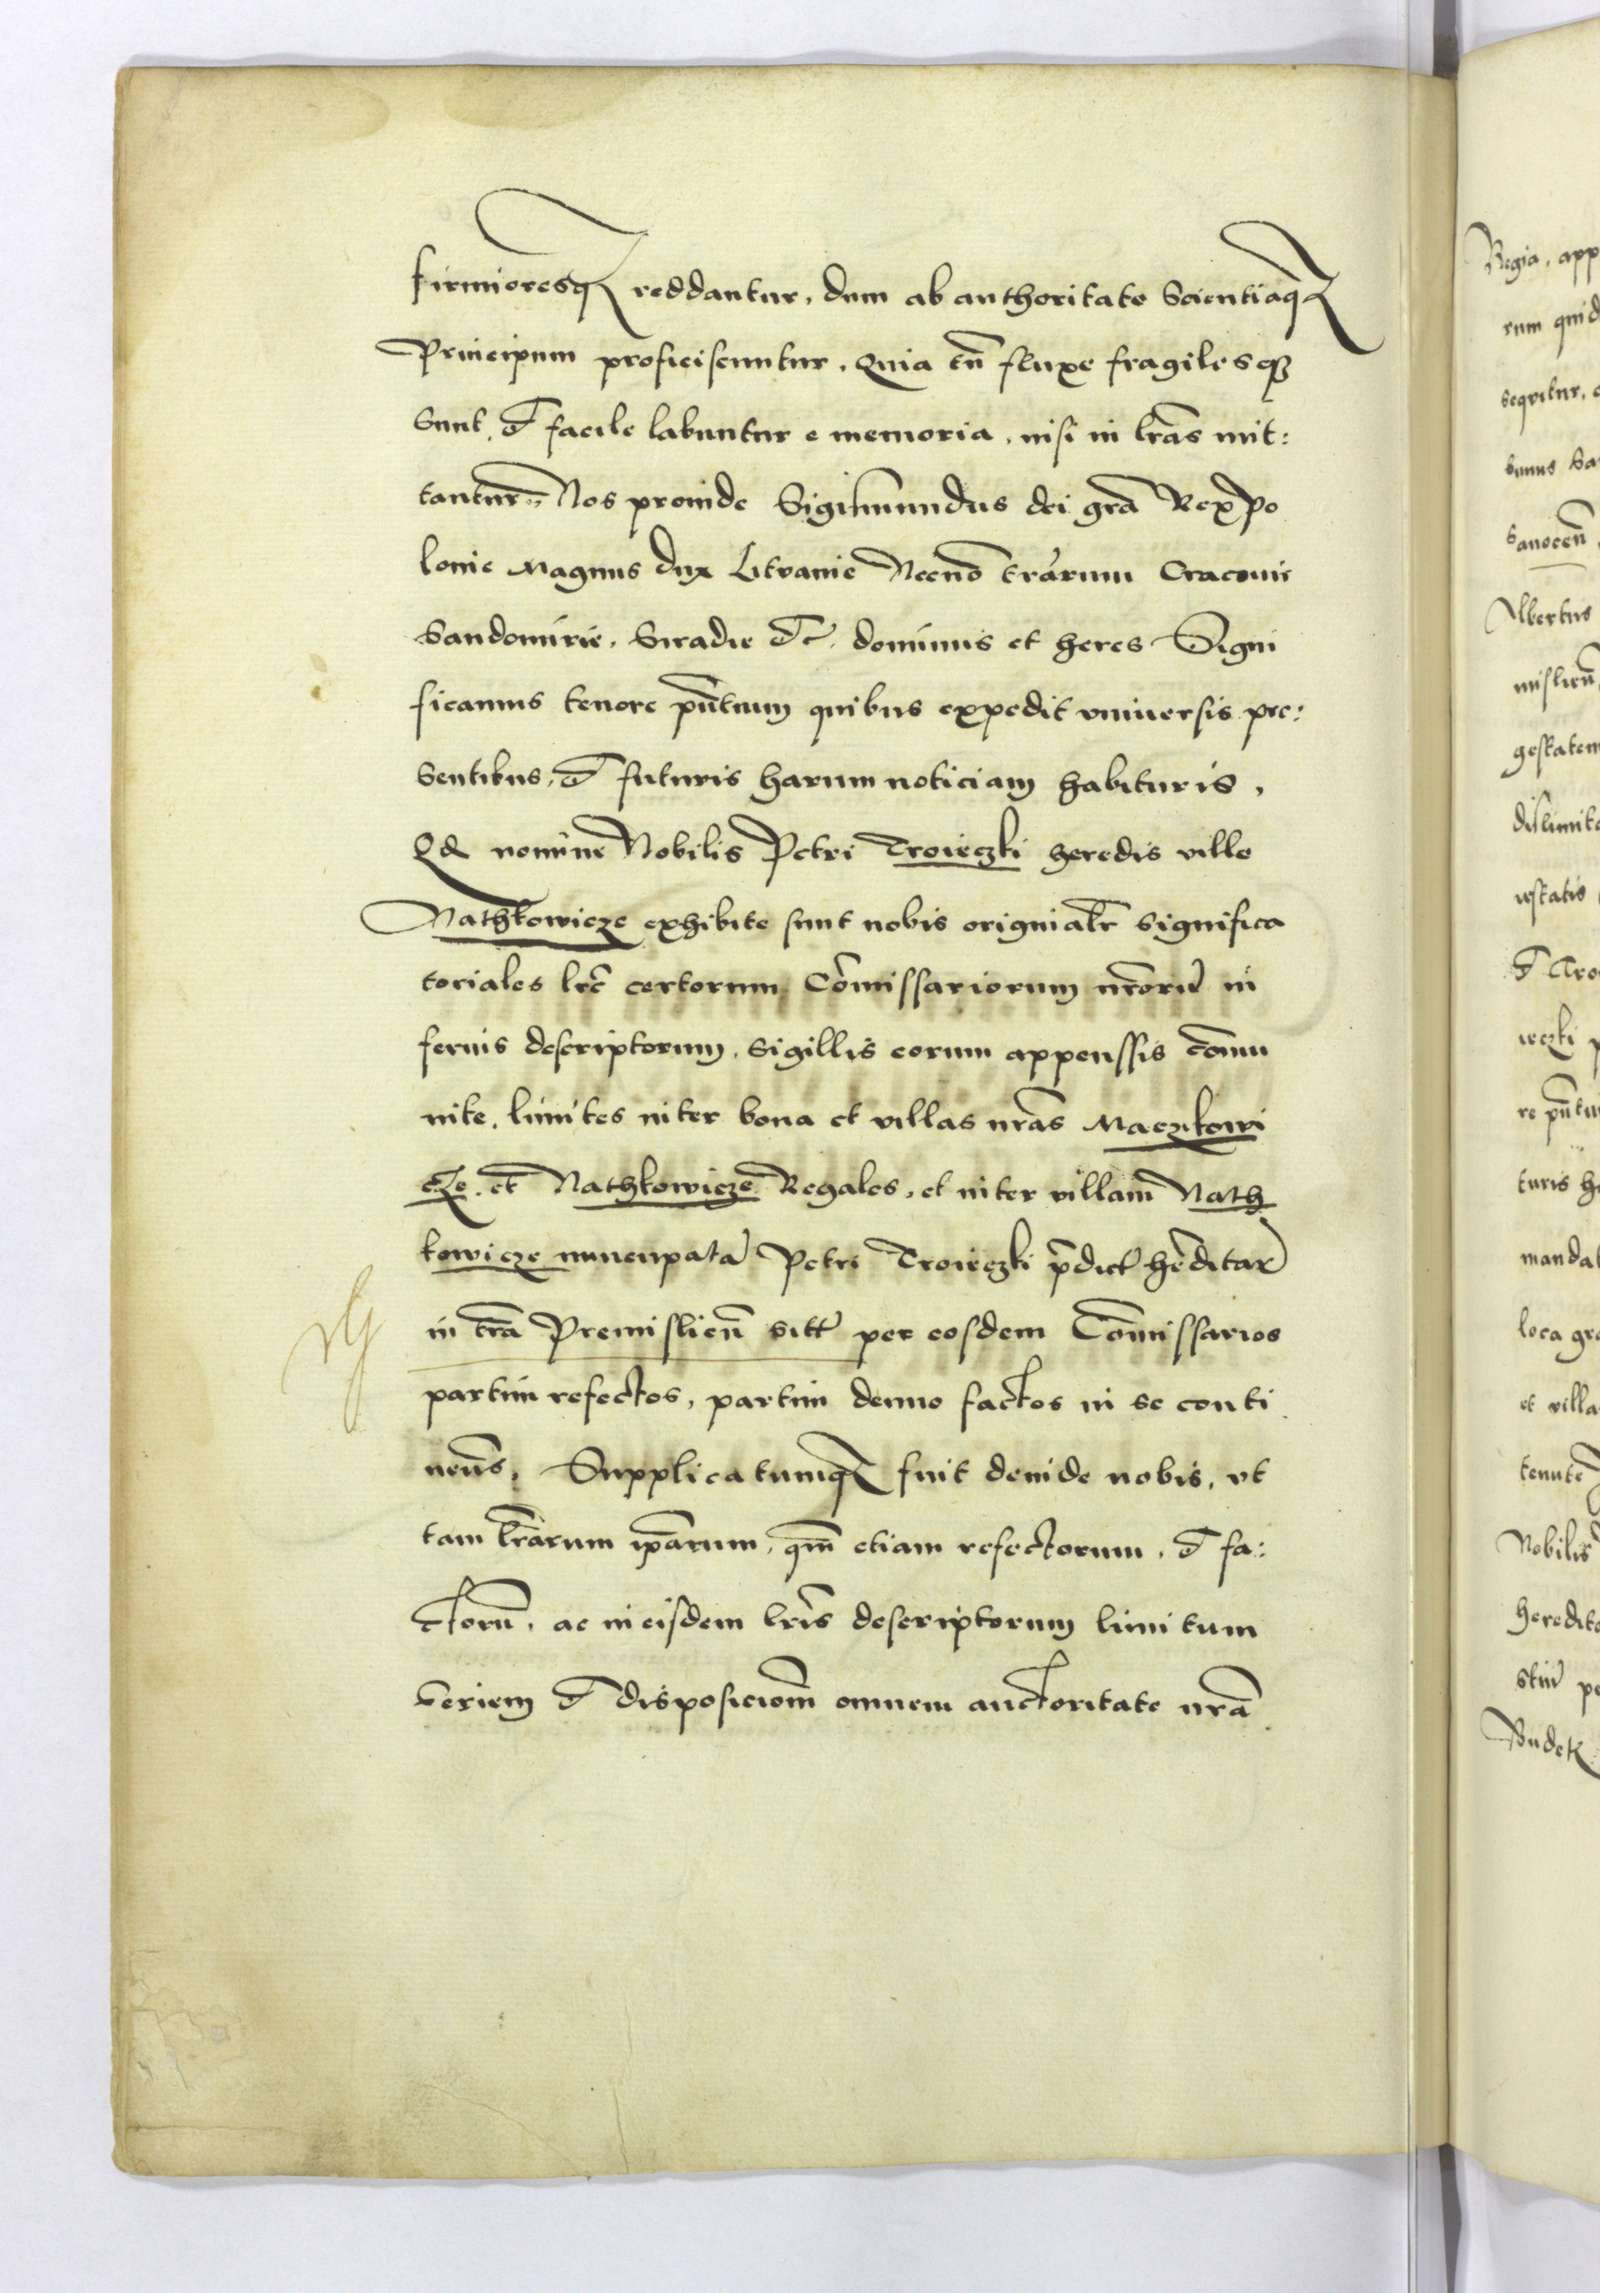 firmioresq3 reddantur, dum ab authoritate Scientiaq3
Principum proficiscuntur. Quia tn̄ fluxe fragilesq3
sunt, & facile labuntur e memoria, nisi in lrās mit:
tantur. Nos proinde Sigismundus dei grā Rex Po
lonie Magnus dux Litvanie Necnō trārum Cracovie
Sandomirie, Siradie &c. dominus et heres Signi
ficamus tenore pn̄tium quibus expedit vniuersis pre:
sentibus, & futuris harum noticiam habituris,
Qd nomine Nobilis Petri Troieczki heredis ville
Nathkowicze exhibite sunt nobis originalr̄ significa
toriales lrē certorum Cōmissariorum nrōrū in
ferius descriptorum, sigillis eorum appenssis cōmu
nite, limites inter bona et villas nrās Maczkowi
cze et Nathkowicze Regales, et inter villam Nath
kowicze nuncupatā Petri Troieczki p̄dict hēditar̄
in trā Premislien̄ sitt per eosdem Cōmissarios
partim refectos, partim denuo factos in se conti
nen̄s. Supplicatumq3 fuit deinde nobis, vt
tam lrārum ip̄arum, qm̄ etiam refectorum, & fa:
ctorū, ac in eisdem lrīs descriptorum limitum
seriem & disposiciom̄ omnem auctoritate nrā
Regia, app
rum quid
sequitur,
Sanocen̄
Albertus
mislien̄
gestatem
dislimita
estatis
& Tro
ieczki p
re pn̄tiu
turis h
mandat
loca gra
et villa
tenute
Nobilis
heredita